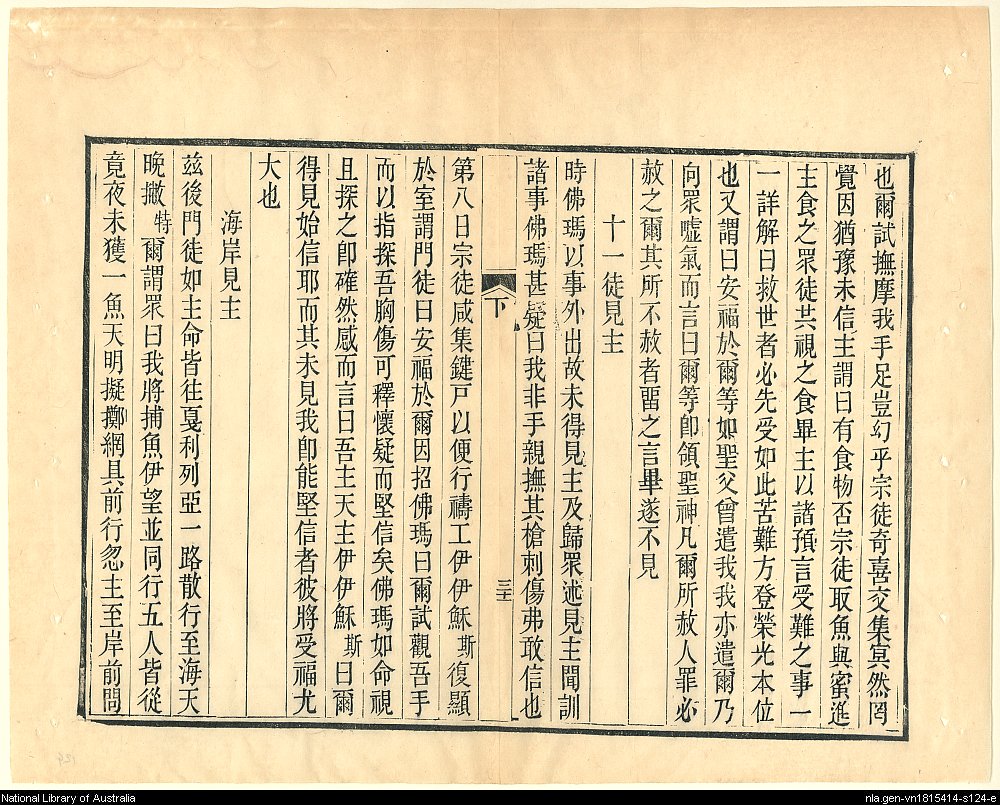 也爾試撫摩我手足豈幻乎宗徒奇喜交集㝠然罔
覺因猶豫未信主謂曰有食物否宗徒取魚與蜜進
主食之眾徒共視之食畢主以諸預言受難之事一
一詳解曰救世者必先受如此苦難方登榮光本位
也又謂曰安福於爾等如聖父曾遣我我亦遣爾乃
向眾噓氣而言曰爾等卽領聖神凡爾所赦人罪必
赦之爾其所不赦者畱之言畢遂不見
十一徒見主
時佛瑪以事外出故未得見主及歸眾述見主聞訓
諸事佛瑪甚疑曰我非手親撫其槍刺傷弗敢信也
下
三十二
第八日宗徒咸集鍵戶以便行禱工伊伊穌斯復顯
於室謂門徒曰安福於爾因招佛瑪曰爾試觀吾手
而以指探吾胸傷可釋懷疑而堅信矣佛瑪如命視
且探之卽確然感而言曰吾主天主伊伊穌斯曰爾
得見始信耶而其未見我卽能堅信者彼將受福尤
大也
海岸見主
玆後門徒如主命皆往戛利列亞一路散行至海天
晚撇特爾謂眾曰我將捕魚伊望並同行五人皆從
竟夜未獲一魚天明擬擲網具前行忽主至岸前問
National Library of Australia
nla.gen-vn1815414-s124-e